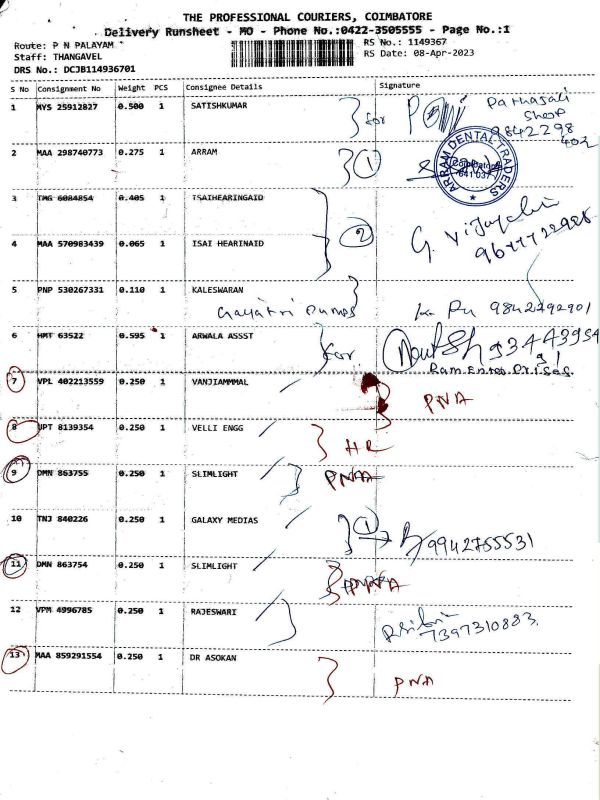 THE PROFESSIONAL COURIERS, COIMBATORE
Delivery Runsheet - MO - Phone No.:0422-3505555 - Page No.:1
Route: P N PALAYAM
Staff: THANGAVEL
DRS No.: DCJB114936701
RS No.: 1149367
RS Date: 08-Apr-2023
S No Consignment No Weight PCS Consignee Details Signature
1 MYS 25912827 0.500 1 SATISHKUMAR for
9842298
402
2 MAA 298740773 0.275 1 ARRAM 1
ARRAM DENTAL TRADERS
641 037
3 TMG 6084854 0.405 1 TSAIHEARINGAID
2 G. Vijayalaxmi
4 MAA 570983439 0.065 1 ISAI HEARINAID
5 PNP 530267331 0.110 1 KALESWARAN
Gayatri Pumps 9842792901
6 HMT 63522 0.595 1 ARWALA ASSST for
Ram Enterprises
7 VPL 402213559 0.250 1 VANJIAMMMAL PNA
8 UPT 8139354 0.250 1 VELLI ENGG
9 DMN 863755 0.250 1 SLIMLIGHT PNA
10 TNJ 840226 0.250 1 GALAXY MEDIAS 1 9942755531
11 DMN 863754 0.250 1 SLIMLIGHT
12 VPM 4996785 0.250 1 RAJESWARI
7397310883
13 MAA 859291554 0.250 1 DR ASOKAN PNA